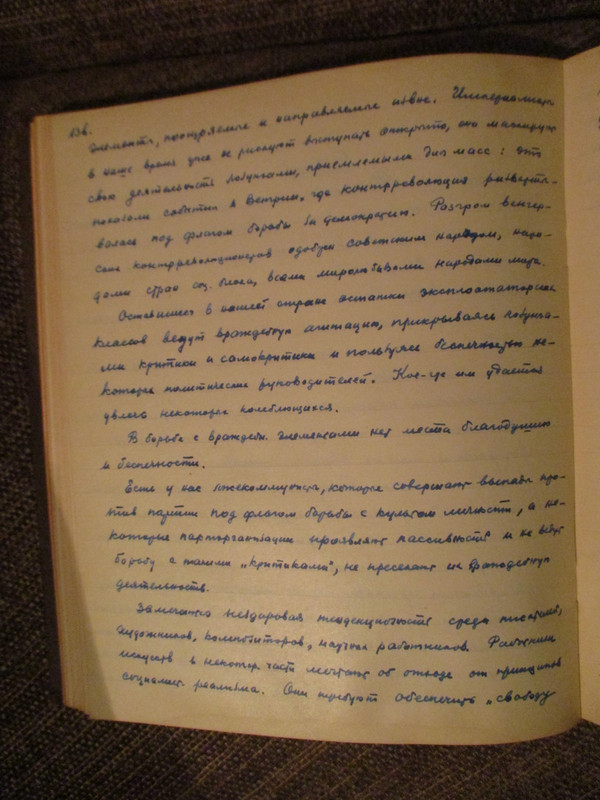 136.
элементы, поощряемые и направляемые извне. Империалисты
в наше время уже не рискуют выступать открыто, они маскируют
свою деятельность лозунгами, приемлемыми для масс: это
показали события в Венгрии, где контрреволюция разверты-
валась под флагом борьбы за демократию. Разгром венгер-
ских контрреволюционеров одобрен советским народом, наро-
дами стран соц. блока, всеми миролюбивыми народами мира.
Оставшиеся в нашей стране остатки эксплоататорских
классов ведут враждебную агитацию, прикрываясь лозунга-
ми критики и самокритики и пользуясь беспечностью не-
которых политических руководителей. Кое-где им удается
увлечь некоторых колеблющихся.
В борьбе с враждебн. элементами нет места благодушию
и беспечности.
Есть у нас лжекоммунисты, которые совершают выпады про-
тив партии под флагом борьбы с культом личности, а не-
которые парторганизации проявляют пассивность и не ведут
борьбу с такими „критиками", не пресекают их
деятельность.
Замечается нездоровая тенденциозность среди писателей,
художников, композиторов, научных работников. Работники
искусств в некотор. части мечтают об отходе от принципов
социалист. реализма. Они требуют обеспечить „свободу